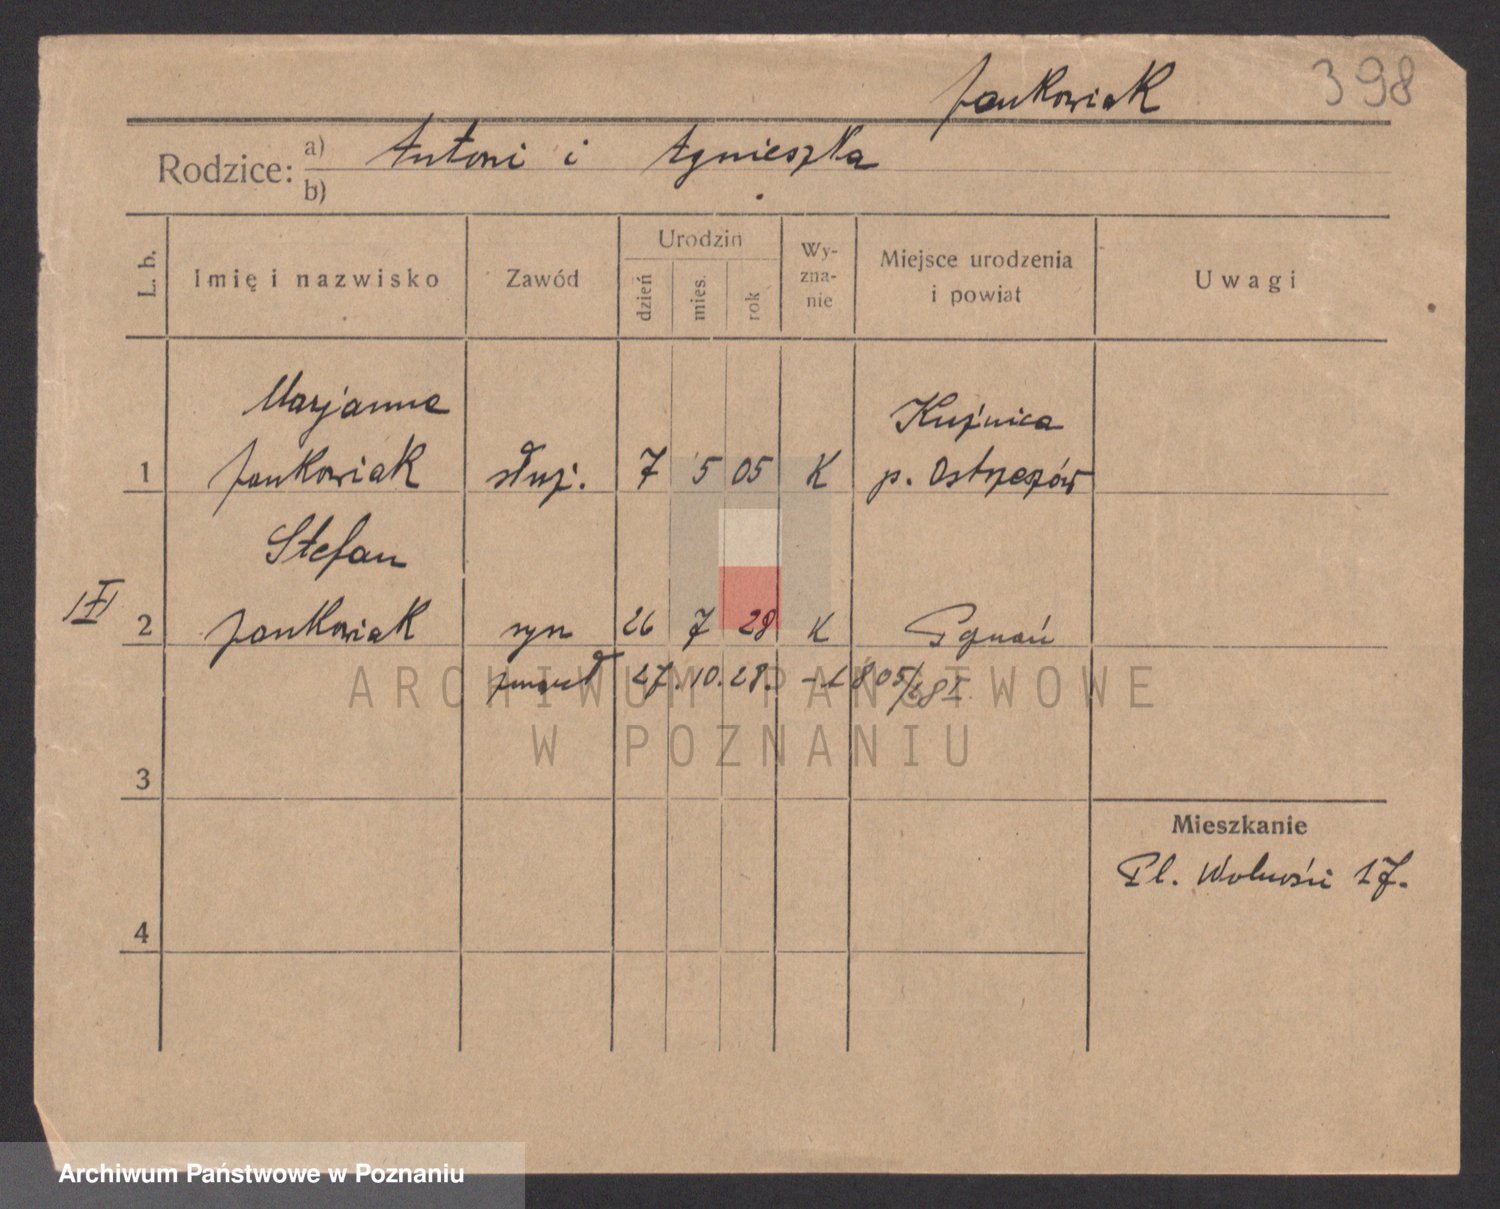 Jankowiak 398
Rodzice: a) Antoni i Agnieszka
b)
L. b. Imię i nazwisko Zawód Urodzin dzień mies. rok Wyznanie Miejsce urodzenia i powiat Uwagi
Marjanna Kuźnica
1 Jankowiak służ. 7 5 05 K p. Ostrzeszów
Stefan
2 Jankowiak syn 26 7 28 K Poznań
zmarł 27.10.28.
ARCHIWUM PAŃSTWOWE
W POZNANIU
3
Mieszkanie
Pl. Wolności 17.
4
Archiwum Państwowe w Poznaniu